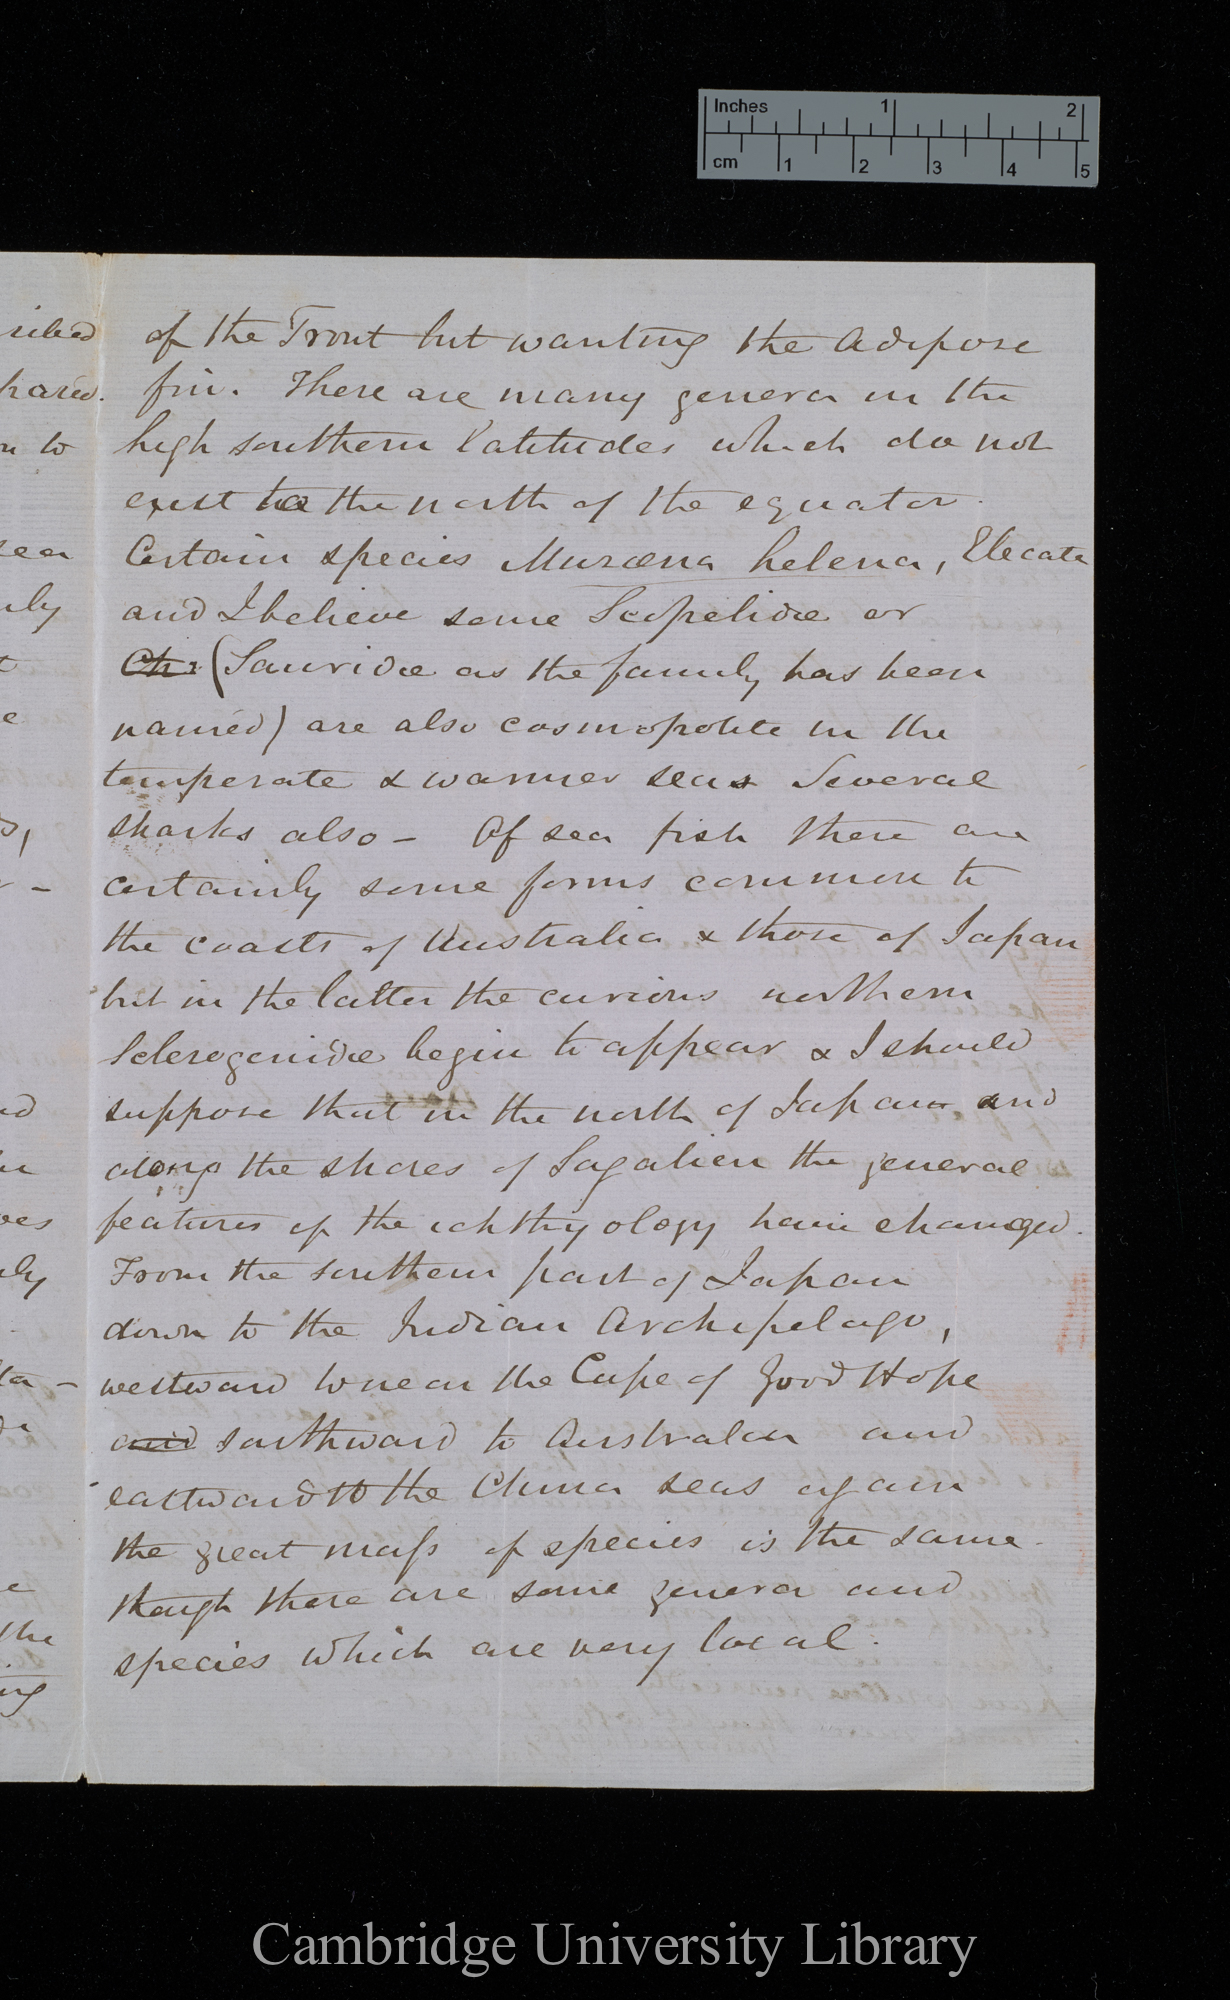 Inches 1 2
cm 1 2 3 4 5
of the Trout but wanting the Adipose
fin. There are many genera in the
high southern latitudes which do not
exist to the north of the equator.
Certain species Muræna helena, Elecate
and I believe some Scopelidæ or
(Sauridæ as the family has been
named) are also cosmopolite in the
temperate & warmer seas Several
sharks also - Of sea fish there are
certainly some forms common to
the coasts of Australia & those of Japan
but in the latter the curious northern
Sclerogenidæ begin to appear & I should
suppose that in the north of Japan and
along the shores of Sagalien the general
features of the ichthyology have changed.
From the southern part of Japan
down to the Indian Archipelago,
westward to near the Cape of Good Hope
and southward to Australia and
eastward to the China seas again
the great mass of species is the same
though there are some genera and
species which are very local.
Cambridge University Library